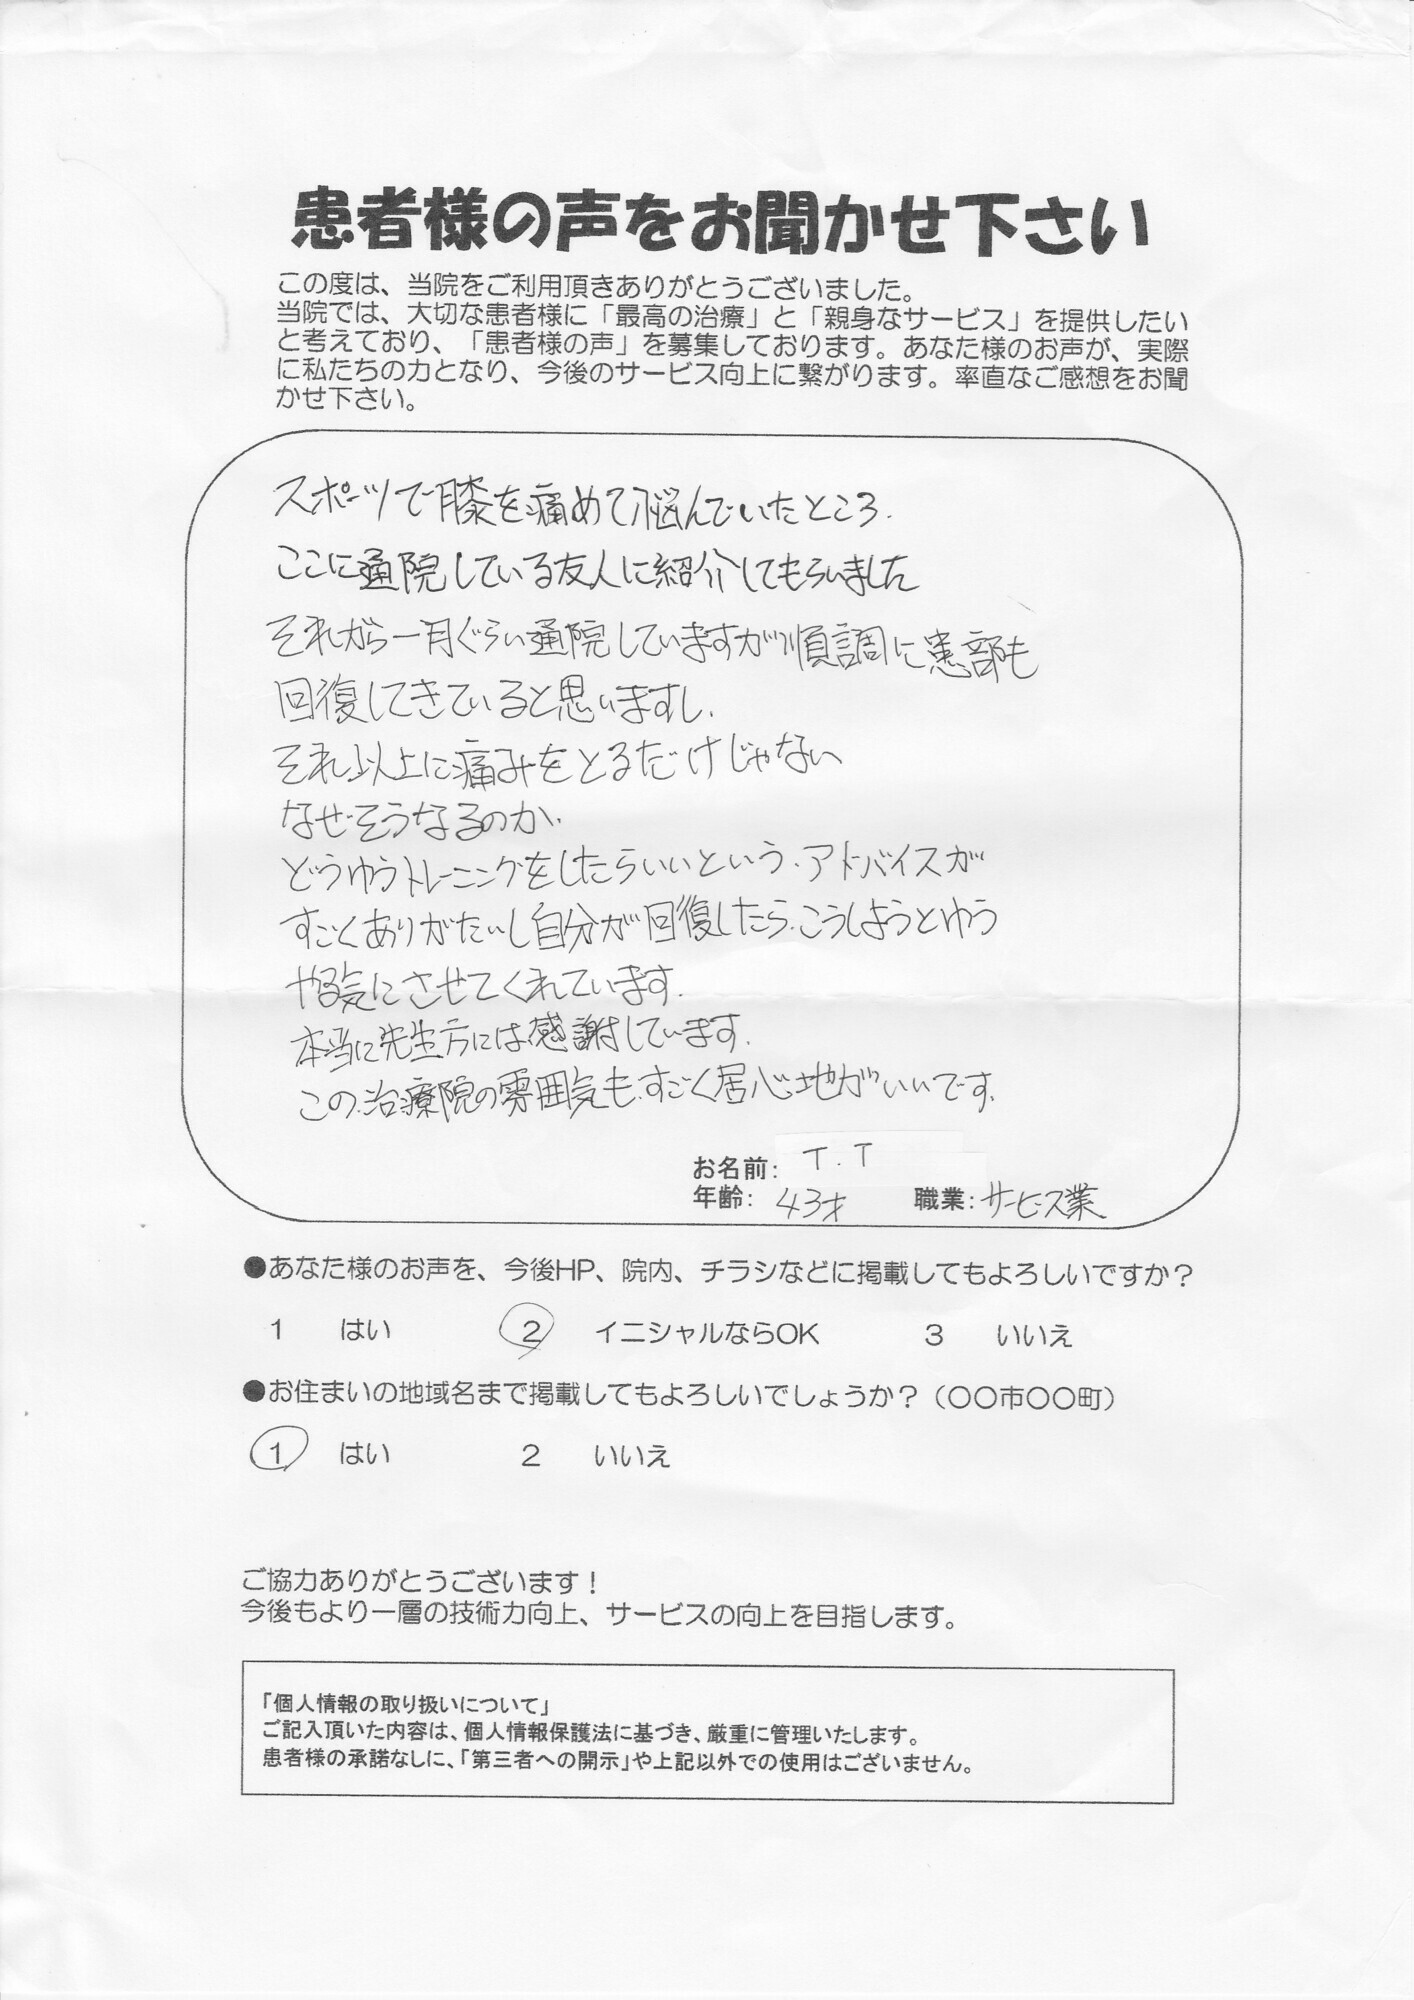 患者様の声をお聞かせ下さい
この度は、当院をご利用頂きありがとうございました。
当院では、大切な患者様に「最高の治療」と「親身なサービス」を提供したい
と考えており、「患者様の声」を募集しております。あなた様のお声が、実際
に私たちの力となり、今後のサービス向上に繋がります。率直なご感想をお聞
かせ下さい。
スポーツで膝を痛めて悩んでいたところ、
ここに通院している友人に紹介してもらいました
それから一月ぐらい通院していますが順調に患部も
回復してきていると思いますし、
それ以上に痛みをとるだけじゃない
なぜそうなるのか、
どうゆうトレーニングをしたらいいという、アドバイスが
すごくありがたいし自分が回復したら、こうしようとゆう
やる気にさせてくれています。
本当に先生方には感謝しています。
この治療院の雰囲気も、すごく居心地がいいです。
お名前: T.T
年齢: 43才 職業: サービス業
●あなた様のお声を、今後HP、院内、チラシなどに掲載してもよろしいですか?
1 はい 2 イニシャルならOK 3 いいえ
●お住まいの地域名まで掲載してもよろしいでしょうか?(〇〇市〇〇町)
1 はい 2 いいえ
ご協力ありがとうございます!
今後もより一層の技術力向上、サービスの向上を目指します。
「個人情報の取り扱いについて」
ご記入頂いた内容は、個人情報保護法に基づき、厳重に管理いたします。
患者様の承諾なしに、「第三者への開示」や上記以外での使用はございません。